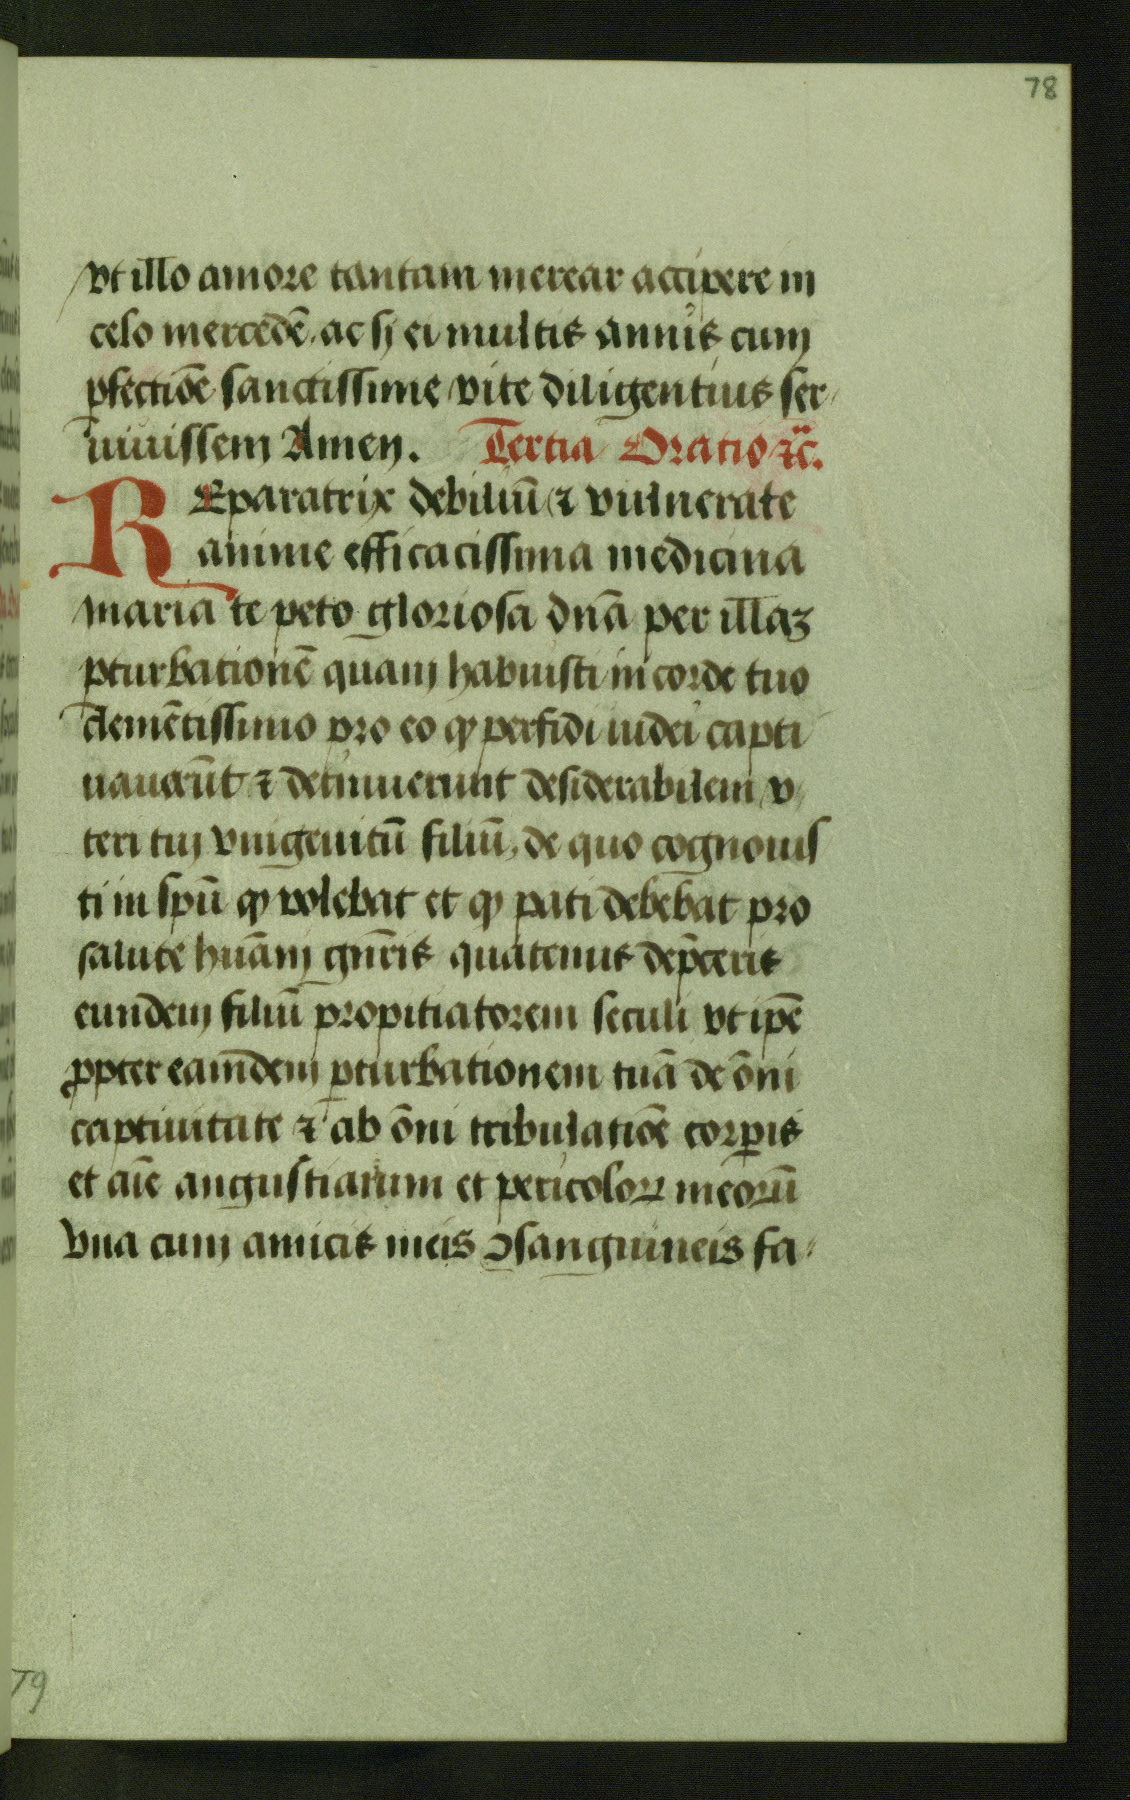 78
vt illo amore tantam merear accipere in
celo mercedē. ac si ei multis annis cum
ꝑfectiōe sanctissime vite diligentius ser⸗
uiuissem Amen. Tertia Oratio ⁊c̄.
REparatrix debiliū ⁊ vulnerate
anime efficacissima medicina
maria te peto gloriosa dnā per illaꝫ
ꝑturbationē quam habuisti in corde tuo
clemētissimo pro eo ꝙ perfidi iudei capti
uauerūt ⁊ detinuerunt desiderabilem v
teri tui vnigenitū filiū, de quo cognouis
ti in spū ꝙ volebat et ꝙ pati debebat pro
salute hūani gn̄ris quatenus dep̄ceris
eundem filiū propitiatorem seculi vt ip̄e
ꝓpter eamdem ꝑturbationem tuā de ōni
captiuitate ⁊ ab ōni tribulatiōe corꝑis
et aīe angustiarum et pericoloꝝ meorū
Vna cum amicis meis ꝯsanguineis fa⸗
79